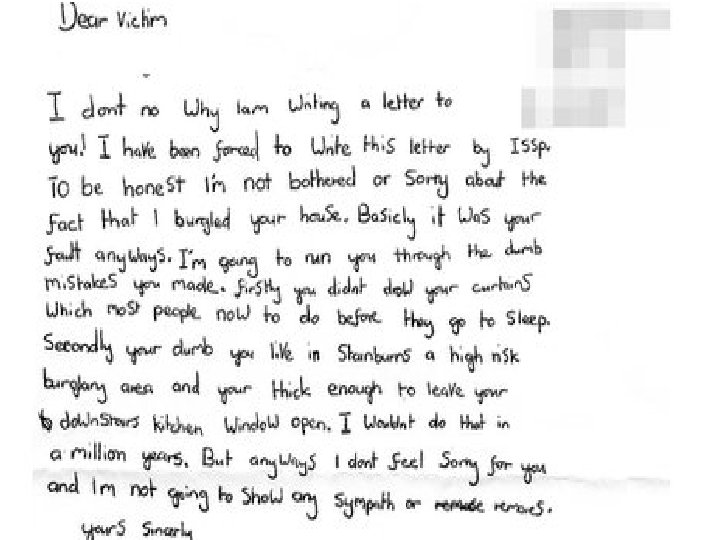 Dear Victim
I dont no Why Iam Writing a letter to
you! I have been forced to Write this letter by ISSP.
To be honest I'm not bothered or Sorry about the
fact that I burgled your house. Basicly it was your
fault anyways. I'm going to run you through the dumb
mistakes you made. firstly you didnt draw your curtains
Which most people now to do before they go to Sleep.
Secondly your dumb you live in Stainburns a high risk
burglary area and your thick enough to leave your
downstairs kitchen Window open. I wouldnt do that in
a million years. But anyways I dont feel Sorry for you
and I'm not going to show any sympath or remores.
yours Sincerly